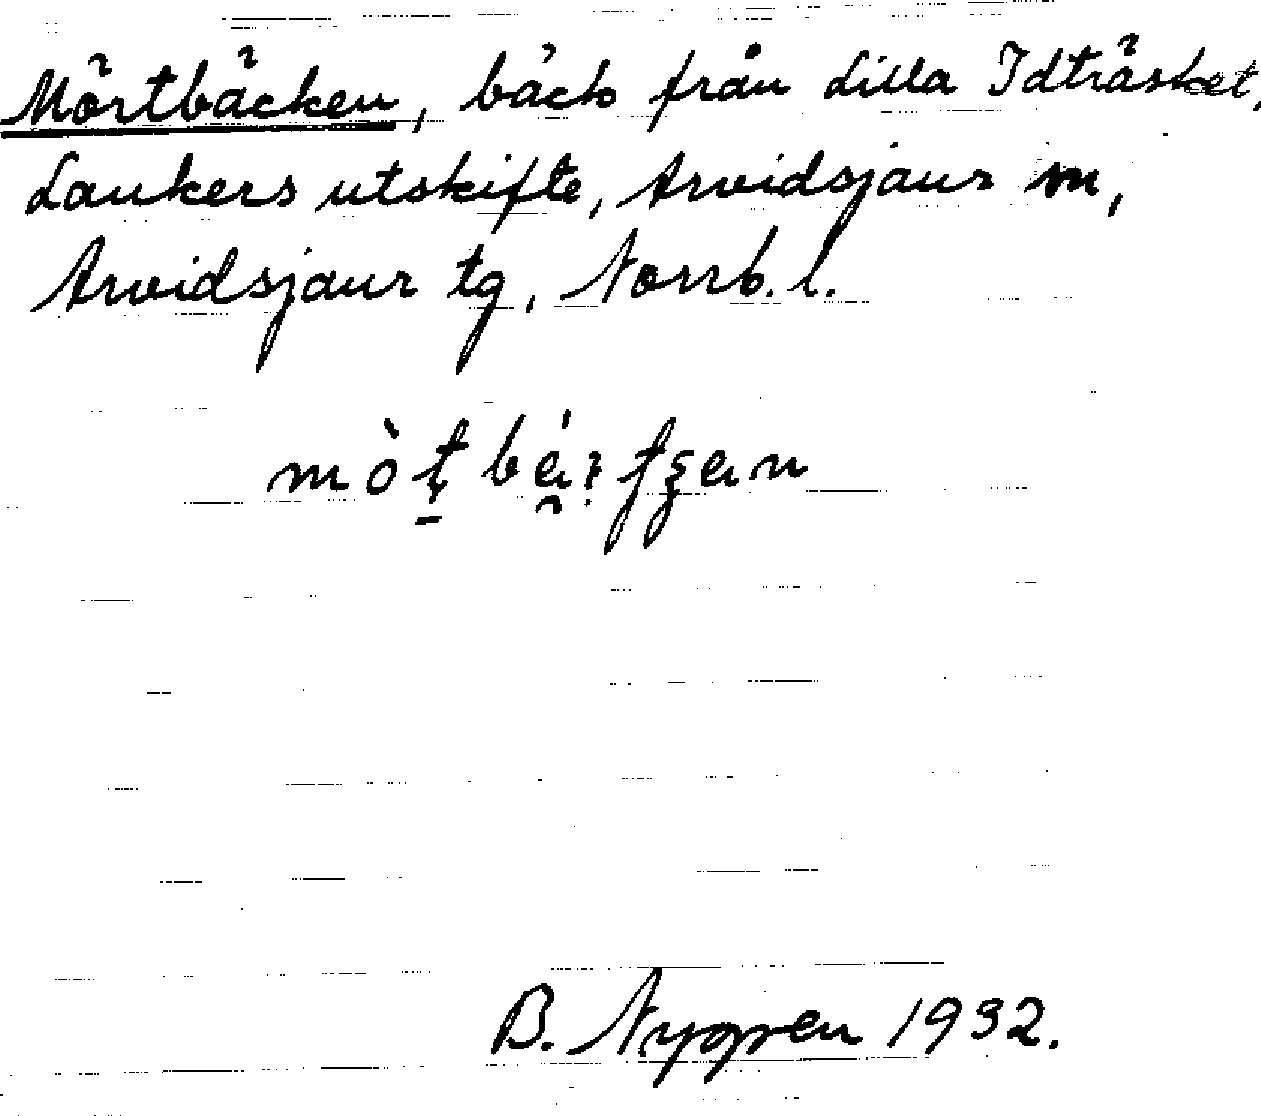 Mörtbäcken, bäck från Lilla Idträsket,
Laukers utskifte, Arvidsjaur m,
Arvidsjaur tg, Norrb. l.
B. Nygren 1932.